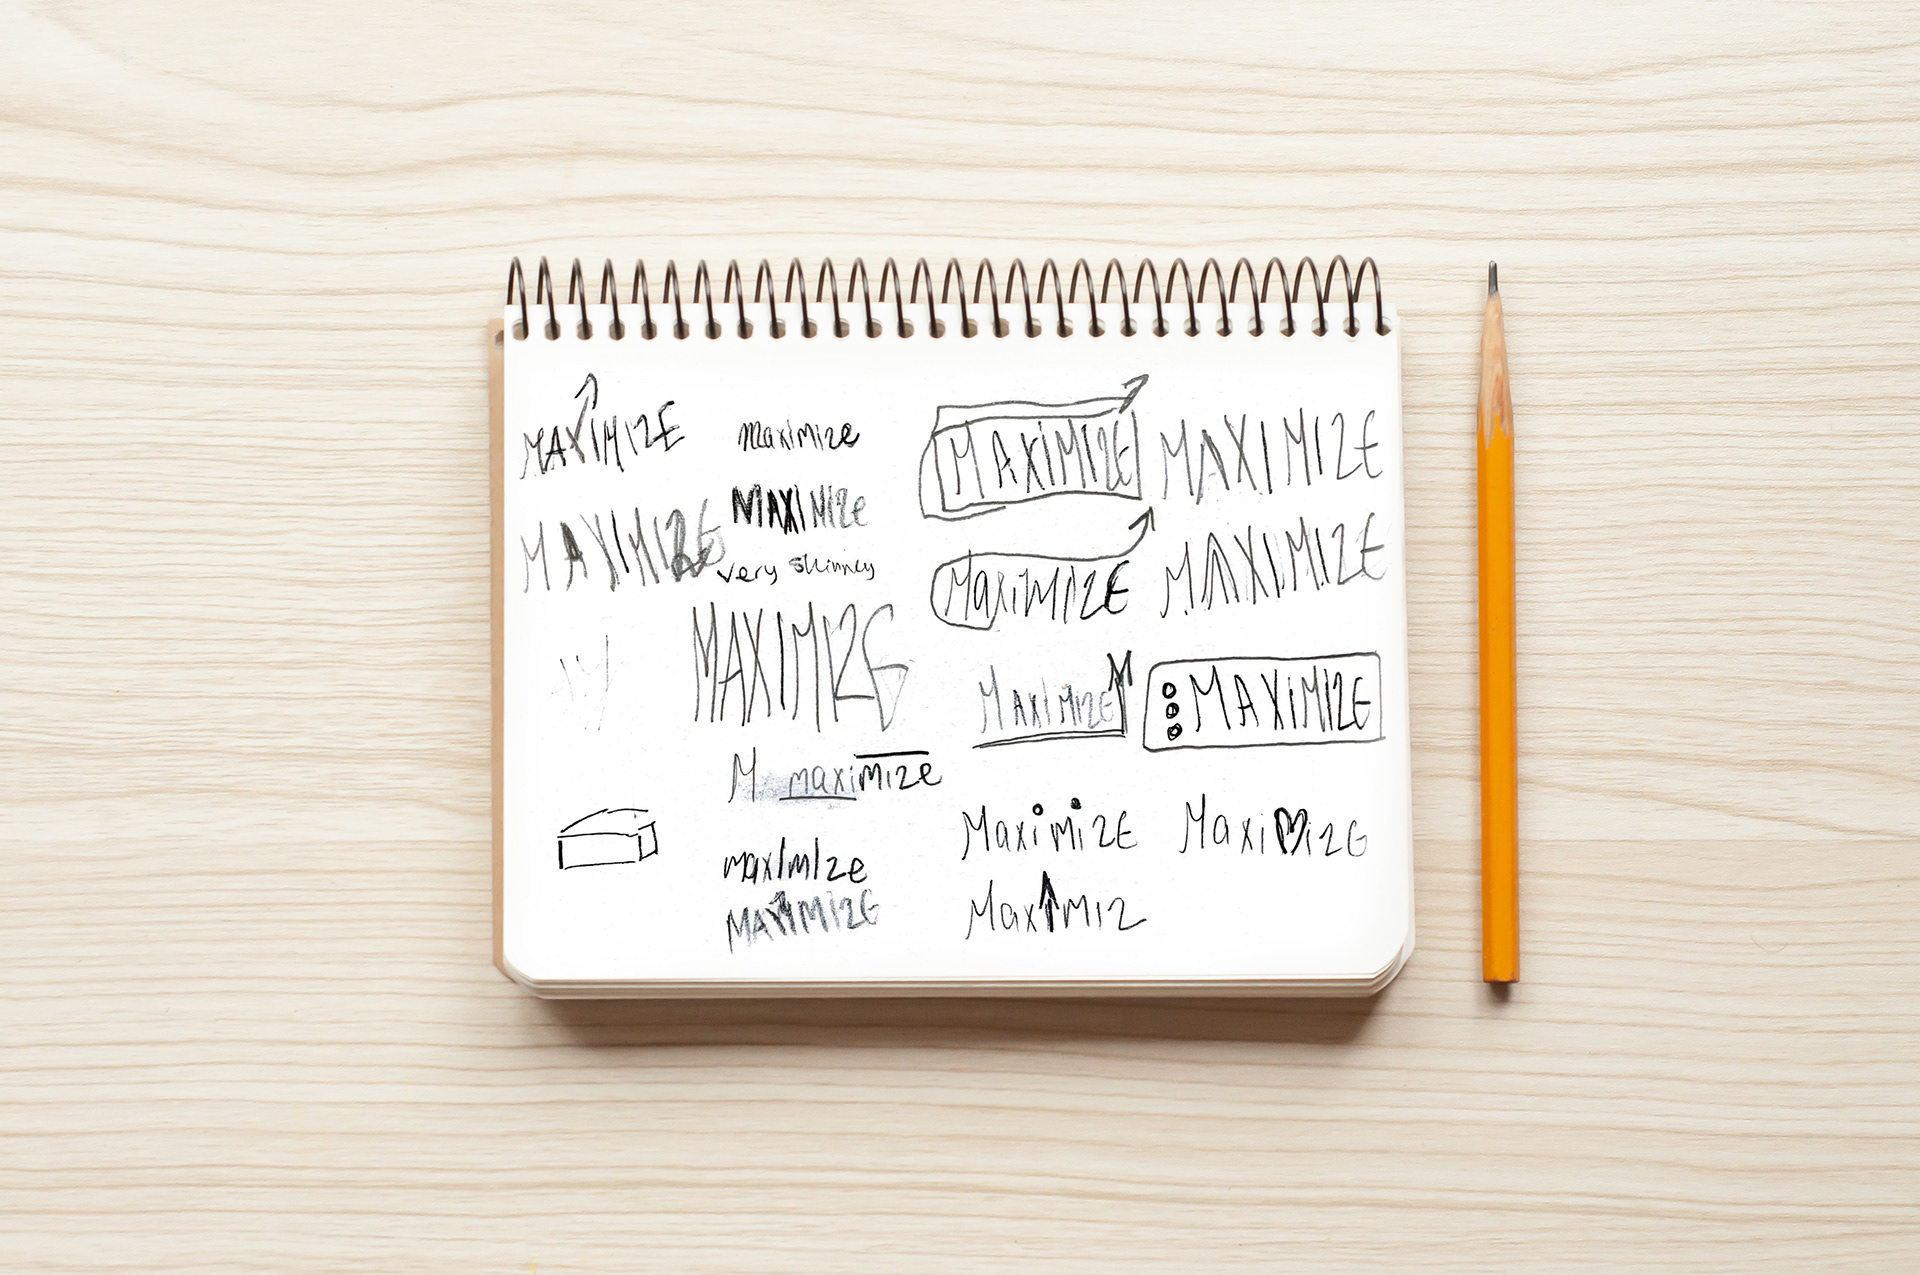 MAXIMIZE
MAXIMIZE
maximize
MAXIMIZe
very skinney
MAXIMIZE
M maximize
maximize
MAXIMIZE
MAXiMIZE
MaxiMIZE
MAXIMIZE
Maximize
MaxiMIZ
MAXIMIZE
MAXIMIZE
MAXiMIZE
MaxiMize